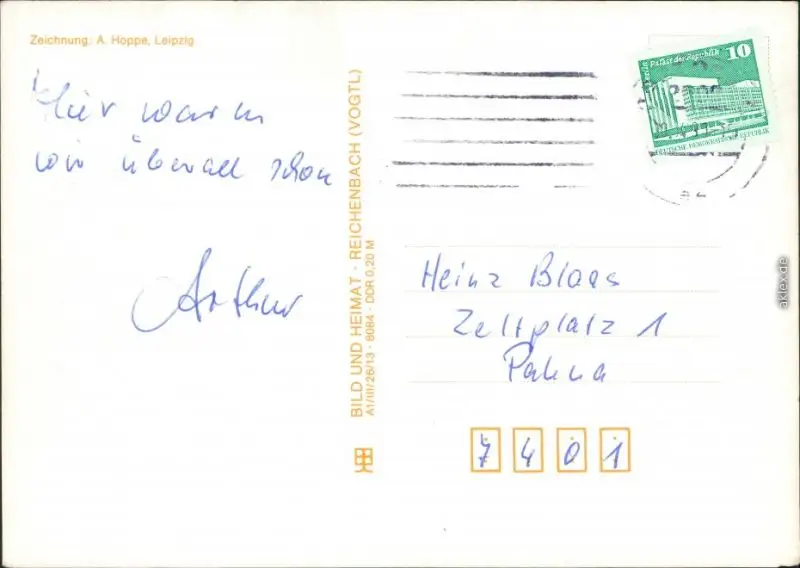 Zeichnung: A. Hoppe, Leipzig
Hier waren
wir überall schon
Arthur
BILD UND HEIMAT · REICHENBACH (VOGTL)
A1/III/26/13 · 8084 · DDR 0,20 M
Berlin Palast der Republik 10
DEUTSCHE DEMOKRATISCHE REPUBLIK
Heinz Blaas
Zeltplatz 1
Pahna
7401
aklex.de